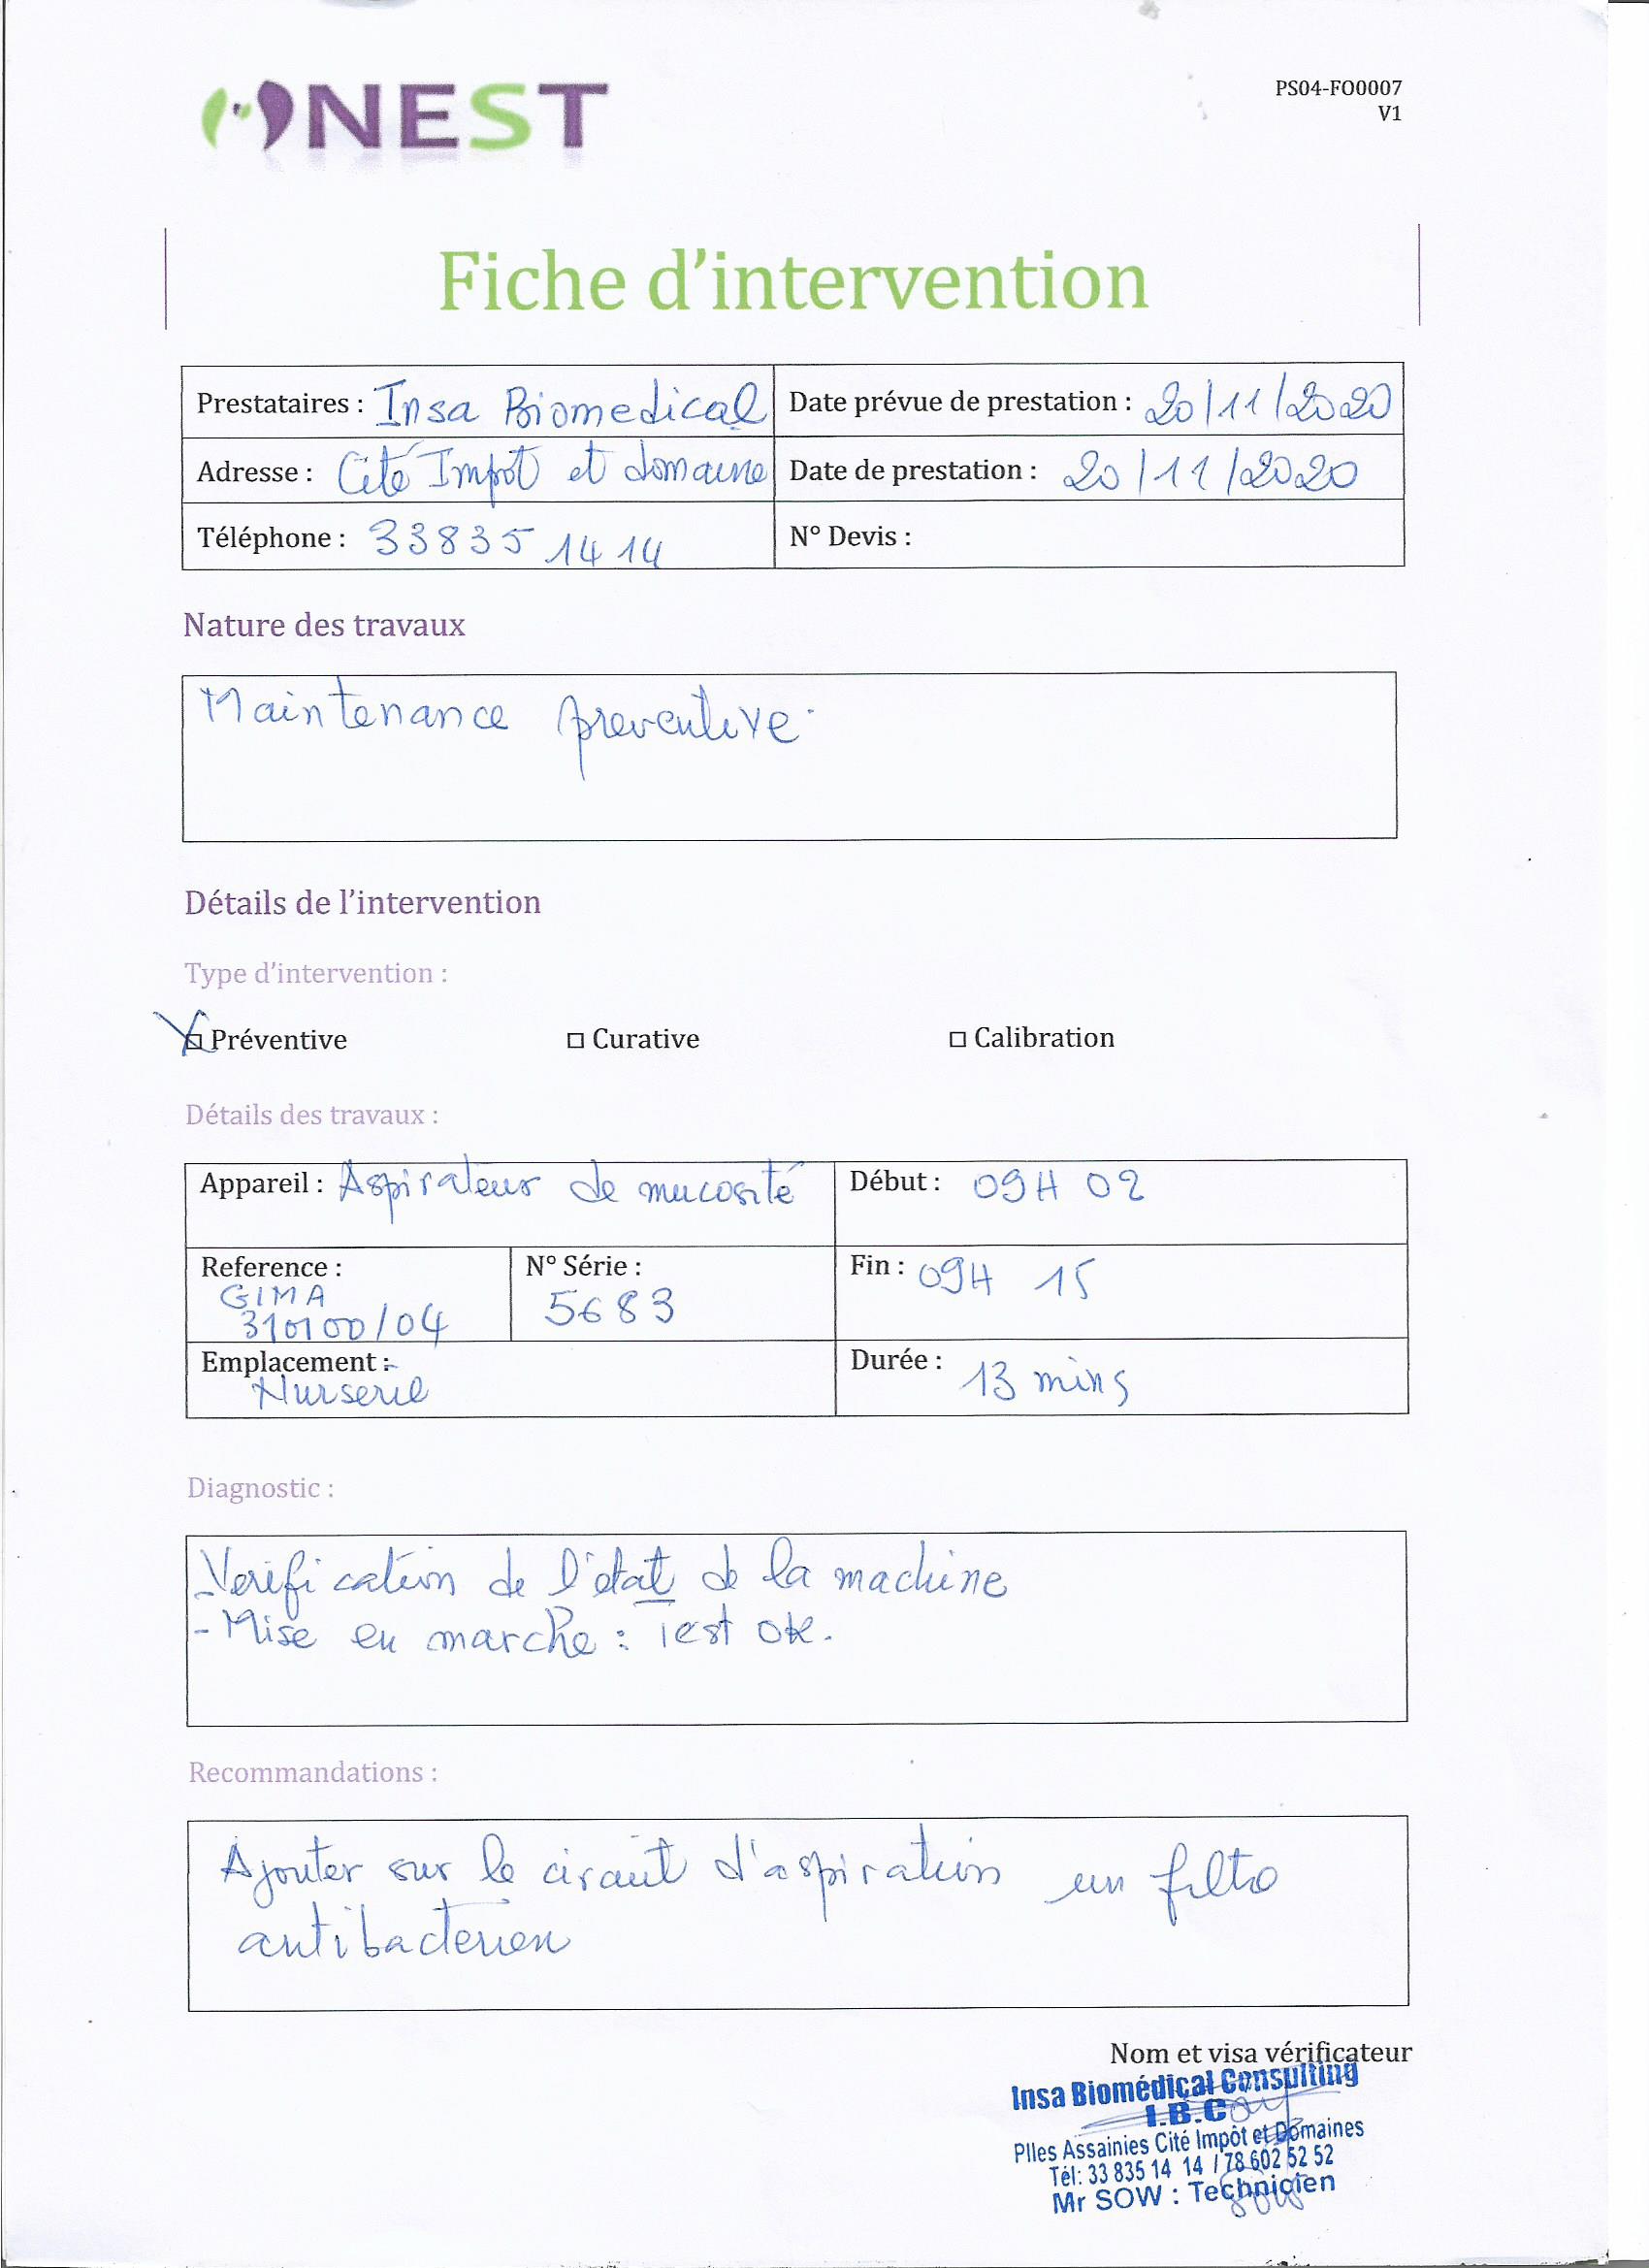 NEST
PS04-FO0007
V1
Fiche d'intervention
Prestataires : Insa Biomedical
Date prévue de prestation : 20/11/2020
Adresse : Cité Impôt et domaine
Date de prestation : 20/11/2020
Téléphone : 33835 14 14
N° Devis :
Nature des travaux
Maintenance preventive
Détails de l'intervention
Type d'intervention :
Préventive
Curative
Calibration
Détails des travaux :
Appareil : Aspirateur de mucosité
Début : 09H 02
Reference :
GIMA
310100/04
N° Série :
5683
Fin : 09H 15
Emplacement :
Nurserie
Durée : 13 mins
Diagnostic :
- Verification de l'état de la machine
- Mise en marche : Test ok.
Recommandations :
Ajouter sur le circuit d'aspiration un filtre
antibacterien
Nom et visa vérificateur
Insa Biomédical Consulting
I.B.C
Plles Assainies Cité Impôt et Domaines
Tél: 33 835 14 14 / 78 602 52 52
Mr SOW : Technicien